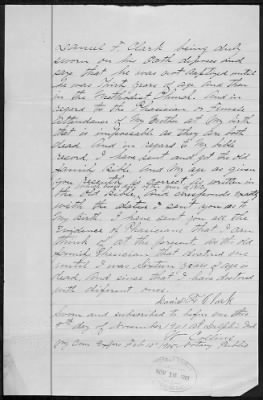 Daniel F. Clark being duly
sworn on his Oath deposes and
says that he was not baptized until
he was thirty years of age And then
in the Methodist Church. And in
regard to the Physician or Female
Attendance of My Mother at My birth
that is impossible as they are both
dead. And in regard to My bible
record, I have sent and got the old
family Bible And My age as given
you is correct as written in
the Old Bible, and
with the dates I sent you as to
My Birth. I have sent you all the
Evidence of Physicians that I can
think of at the present. As the old
family Physician that doctored me
until I was sixteen years of age is
dead. And since that I have doctored
with different ones.
Daniel F. Clark
Sworn and subscribed to before me this
5th day of November 1901 at Delphi Ind
My Com Expires Feb Notary Public
NOV